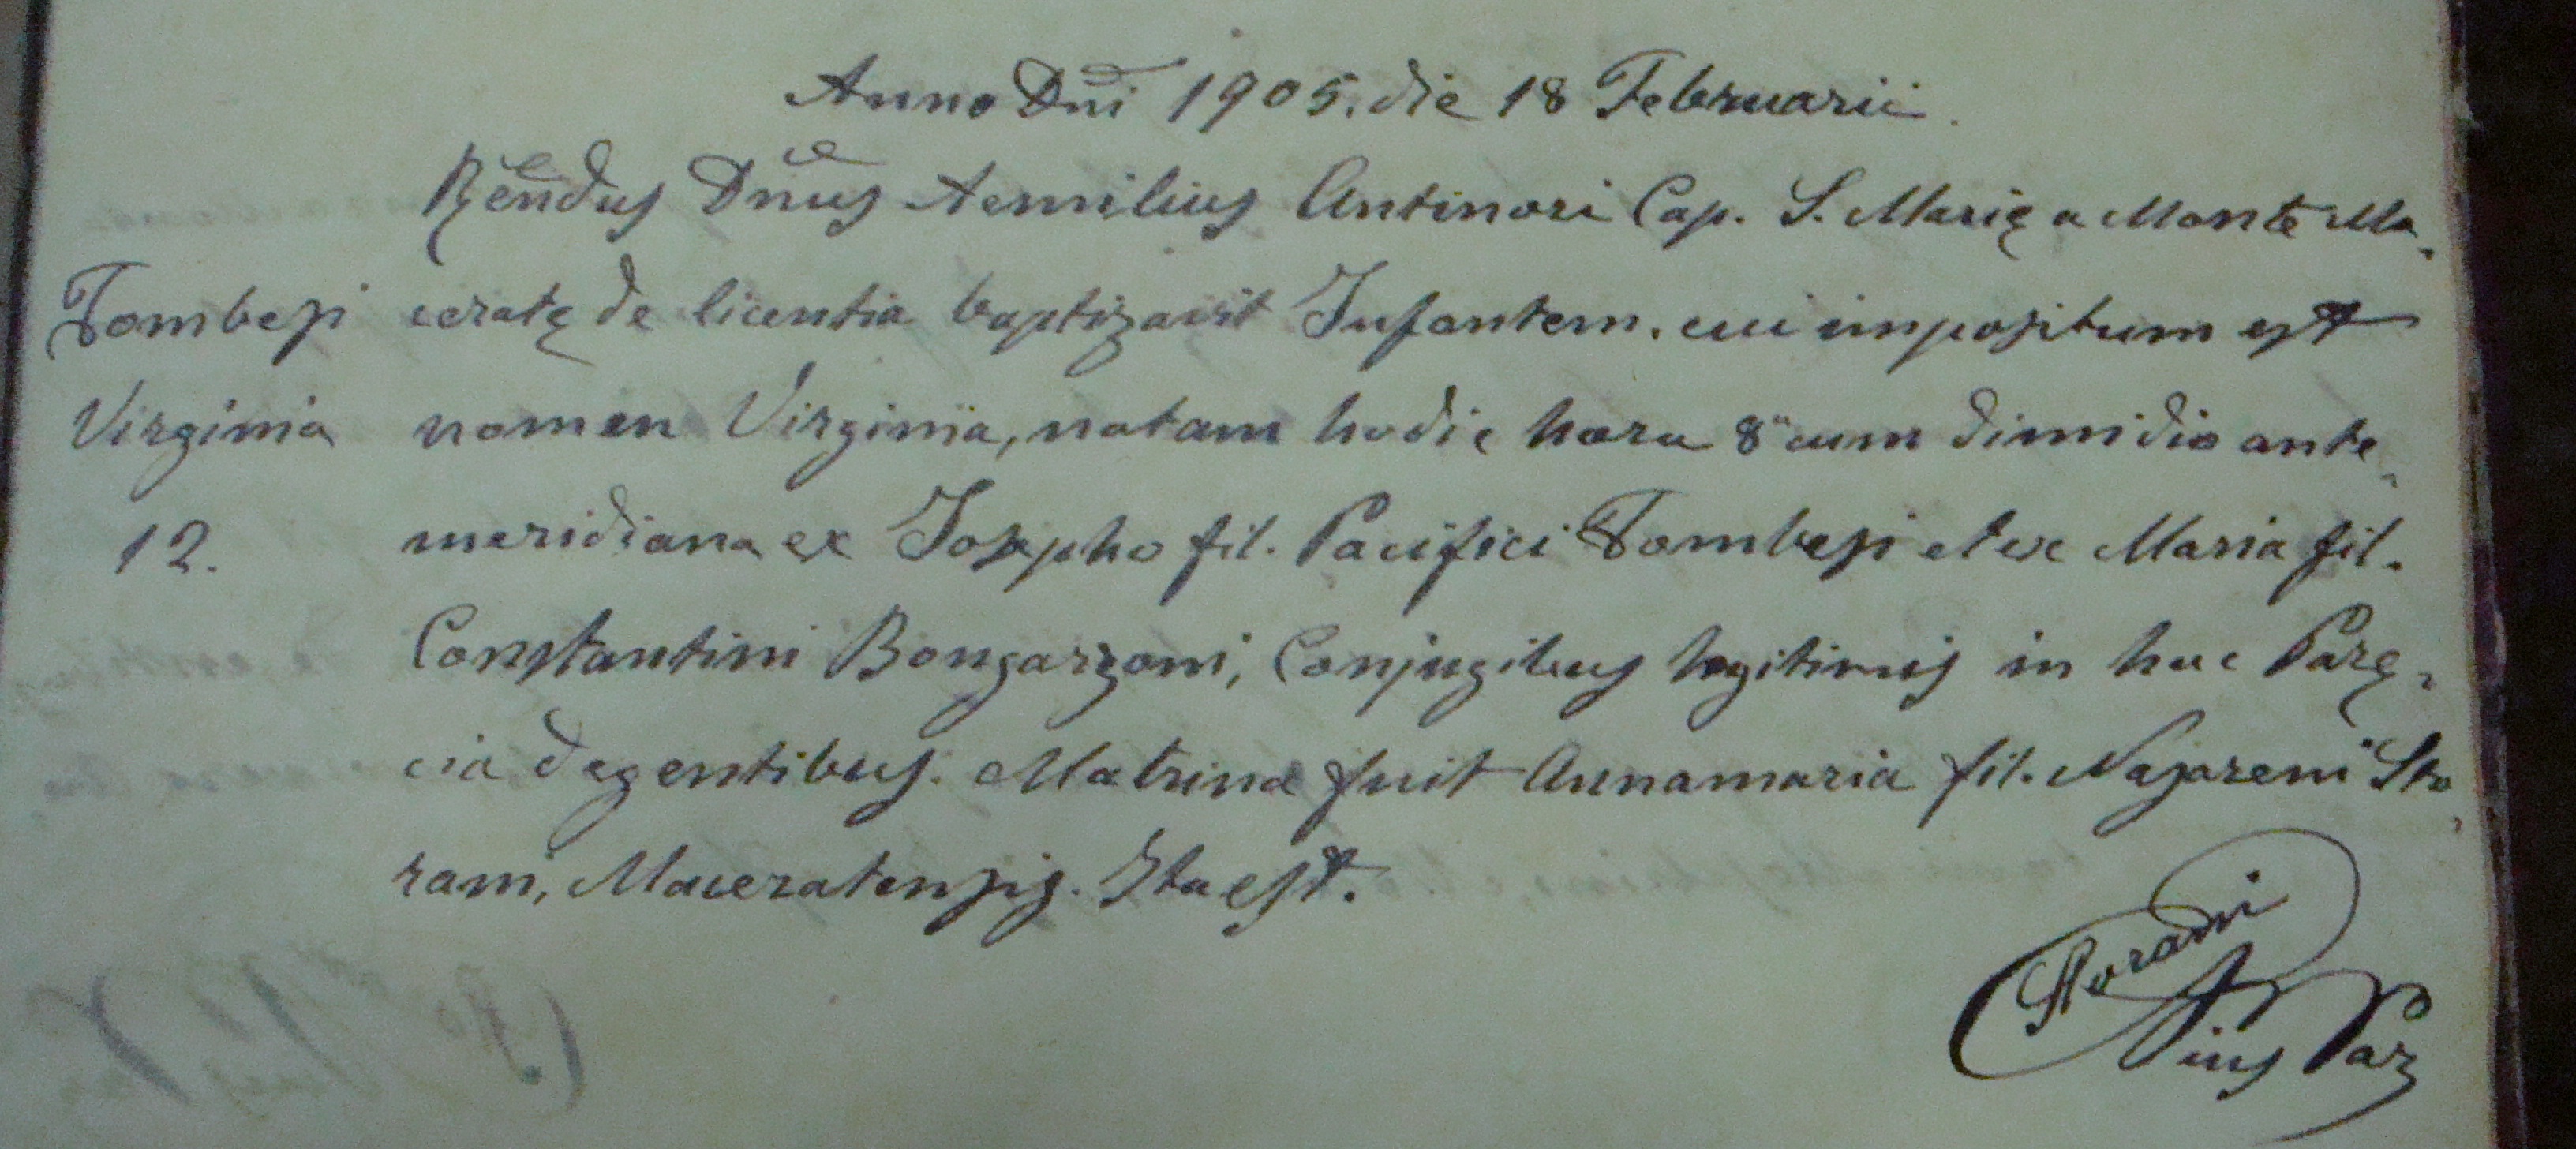 Anno Dñi 1905. die 18 Februarii.
Rẽndus Dñus Aemilius Antinori Cap. S. Marię a Monte Ma-
Tombesi ceratę de licentia baptizavit Infantem, cui impositum est
Virginia nomen Virginia, natam hodie hora 8ª cum dimidio ante-
12. meridiana ex Josepho fil. Pacifici Tombesi et ex Maria fil.
Constantini Bongarzoni, Conjugibus legitimis in hac Parę-
cia degentibus. Matrina fuit Annamaria fil. Nazareni Sto-
rani, Maceratensis. Ita est.
Storani
Pius Par